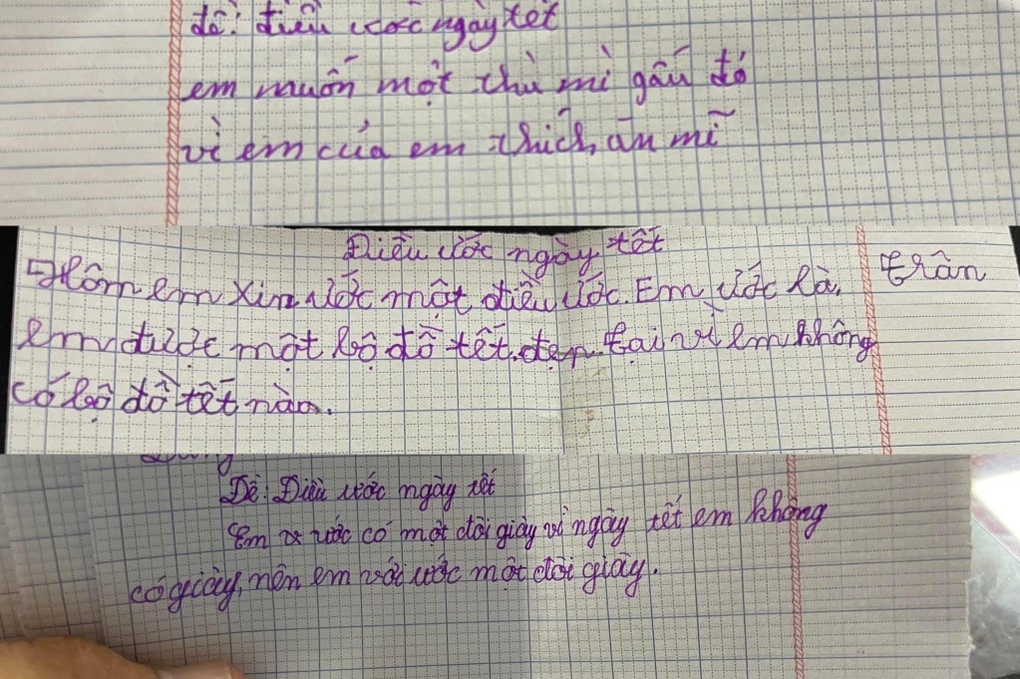 đề: điều ước ngày tết
em muốn một thù mì gấu đỏ
vì em của em thích ăn mĩ
Điều ước ngày tết
Hôm em xin ước một điều ước. Em ước là, trân
em được một bộ đồ tết đẹp. tại vì em không
có bộ đồ tết nào.
Đề: Điều ước ngày tết
Em ước có một đôi giày vì ngày tết em không
có giày, nên em với ước một đôi giày.